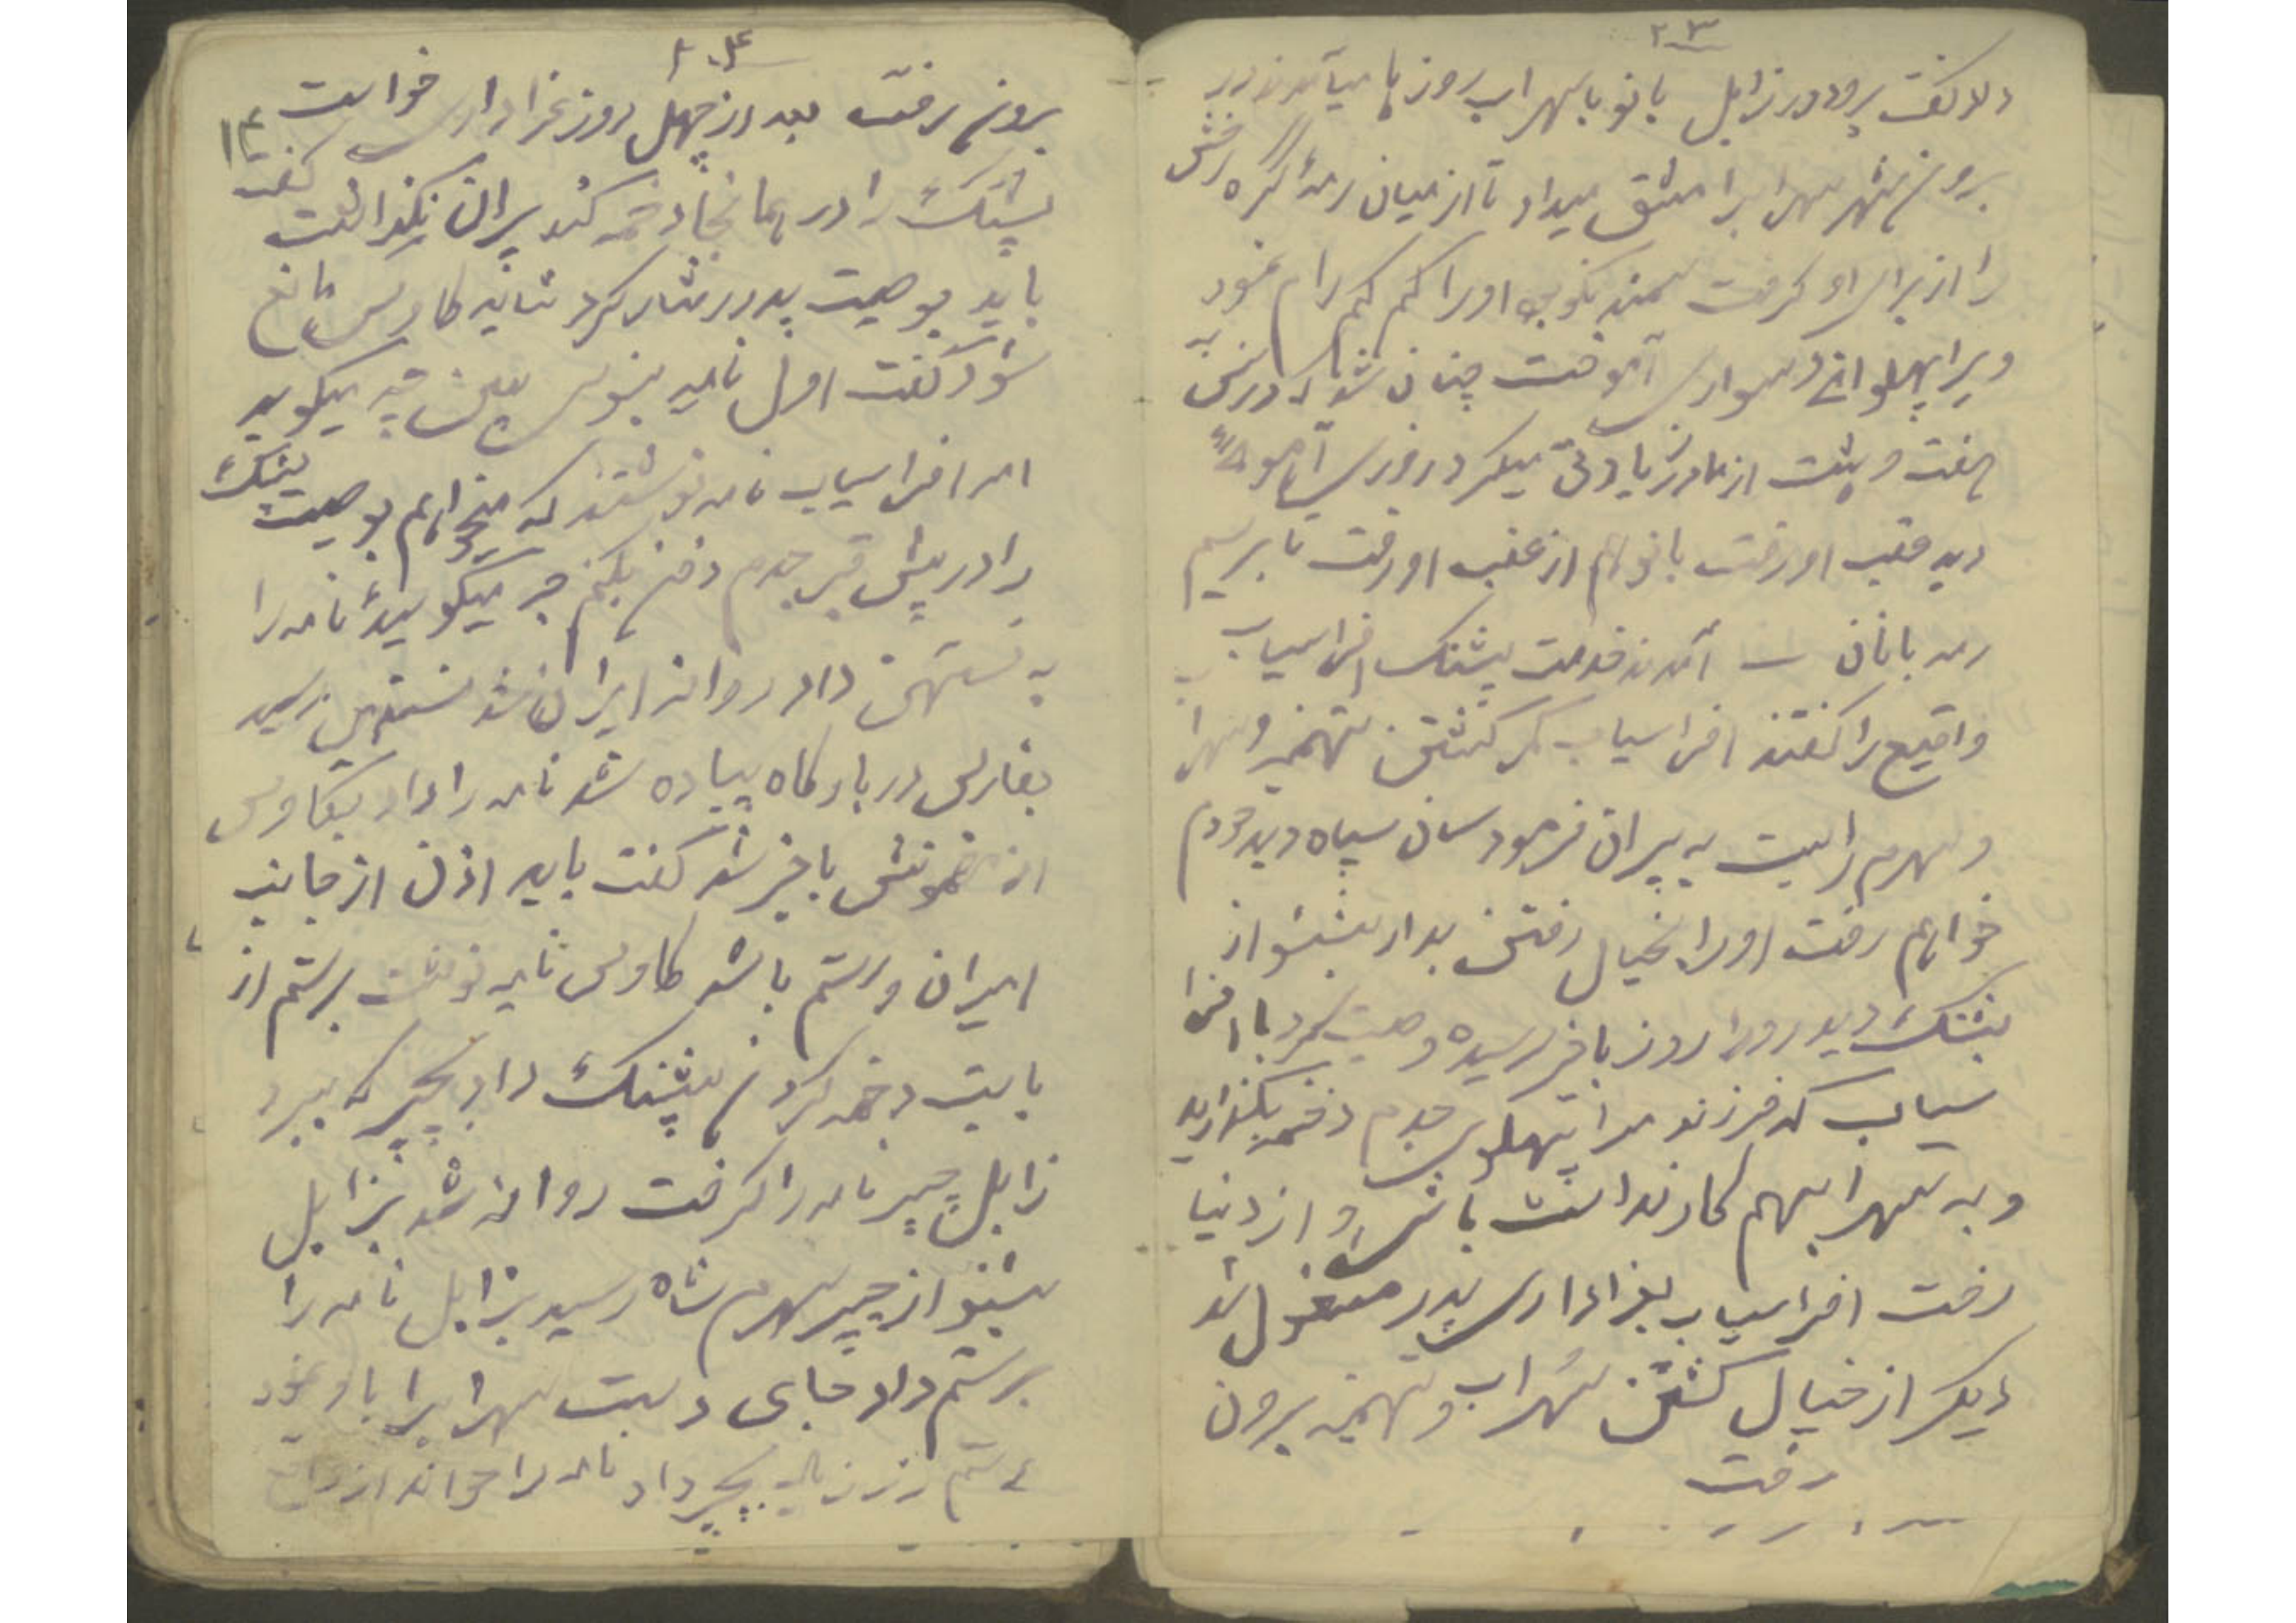 ۲۳
گفت برود در زابل بانو با سهراب روزها میآمدند در
برون شهر سهراب را مشق میداد تا از میان رمه کره رخش
را از برای او گرفت سمند او را کم کم رام نمود
ویرا پهلوانی و سواری آموخت چنان شد که در سن
هفت و هشت از مادر زیادتی میکرد روزی آهو
دید عقب او رفت بانو هم از عقب او رفت تا برسیم
رمه بانان آمدند خدمت پشنگ افراسیاب
واقیع را گفتند افراسیاب کمر کشتن تهمینه و سهرا
و سهرم را بست به پیران فرمود سان سپاه دید خودم
خواهم رفت او را بخیال رفتن بدار بشنو از
پشنگ دید روز باخر رسیده وصیت کرد با افرا
سیاب که فرزند مرا پهلوی جدم دخمه بگذارید
و به سهراب هم کار نداشت باش و از دنیا
رفت افراسیاب بعزاداری پدر مشغول شد
دیگر از خیال کشتن سهراب و تهمینه برون
رفت
۲۴
برون رفت بعد از چهل روز عزاداری خواست
۱۴
پشنگ را در همانجا دخمه کند پیران نگذاشت گفت
باید بوصیت پدر رفتار کرد شاید کاوس مانع
شود گفت اول نامه بنویس ببین چه میگوید
امر افراسیاب نامه نوشتند که میخواهم بوصیت پشنگ
را در پیش قبر جدم دفن بکنم چه میگویید نامه را
به نستهن داد روانه ایران شد نستهن رسید
بفارس در بارگاه پیاده شد نامه را داد بکاوس
از مضمونش باخبر شد گفت باید اذن از جانب
ایران و رستم باشد کاوس نامه نوشت برستم از
بابت دخمه کردن پشنگ داد بچیر که ببرد
زابل چیر نامه را گرفت روانه شد بزابل
بشنو از چیر سهرم شاه رسید بزابل نامه را
برستم داد جای دست سهراب را باو نمود
رستم زر زیاد بچیر داد نامه را خواند از واقع